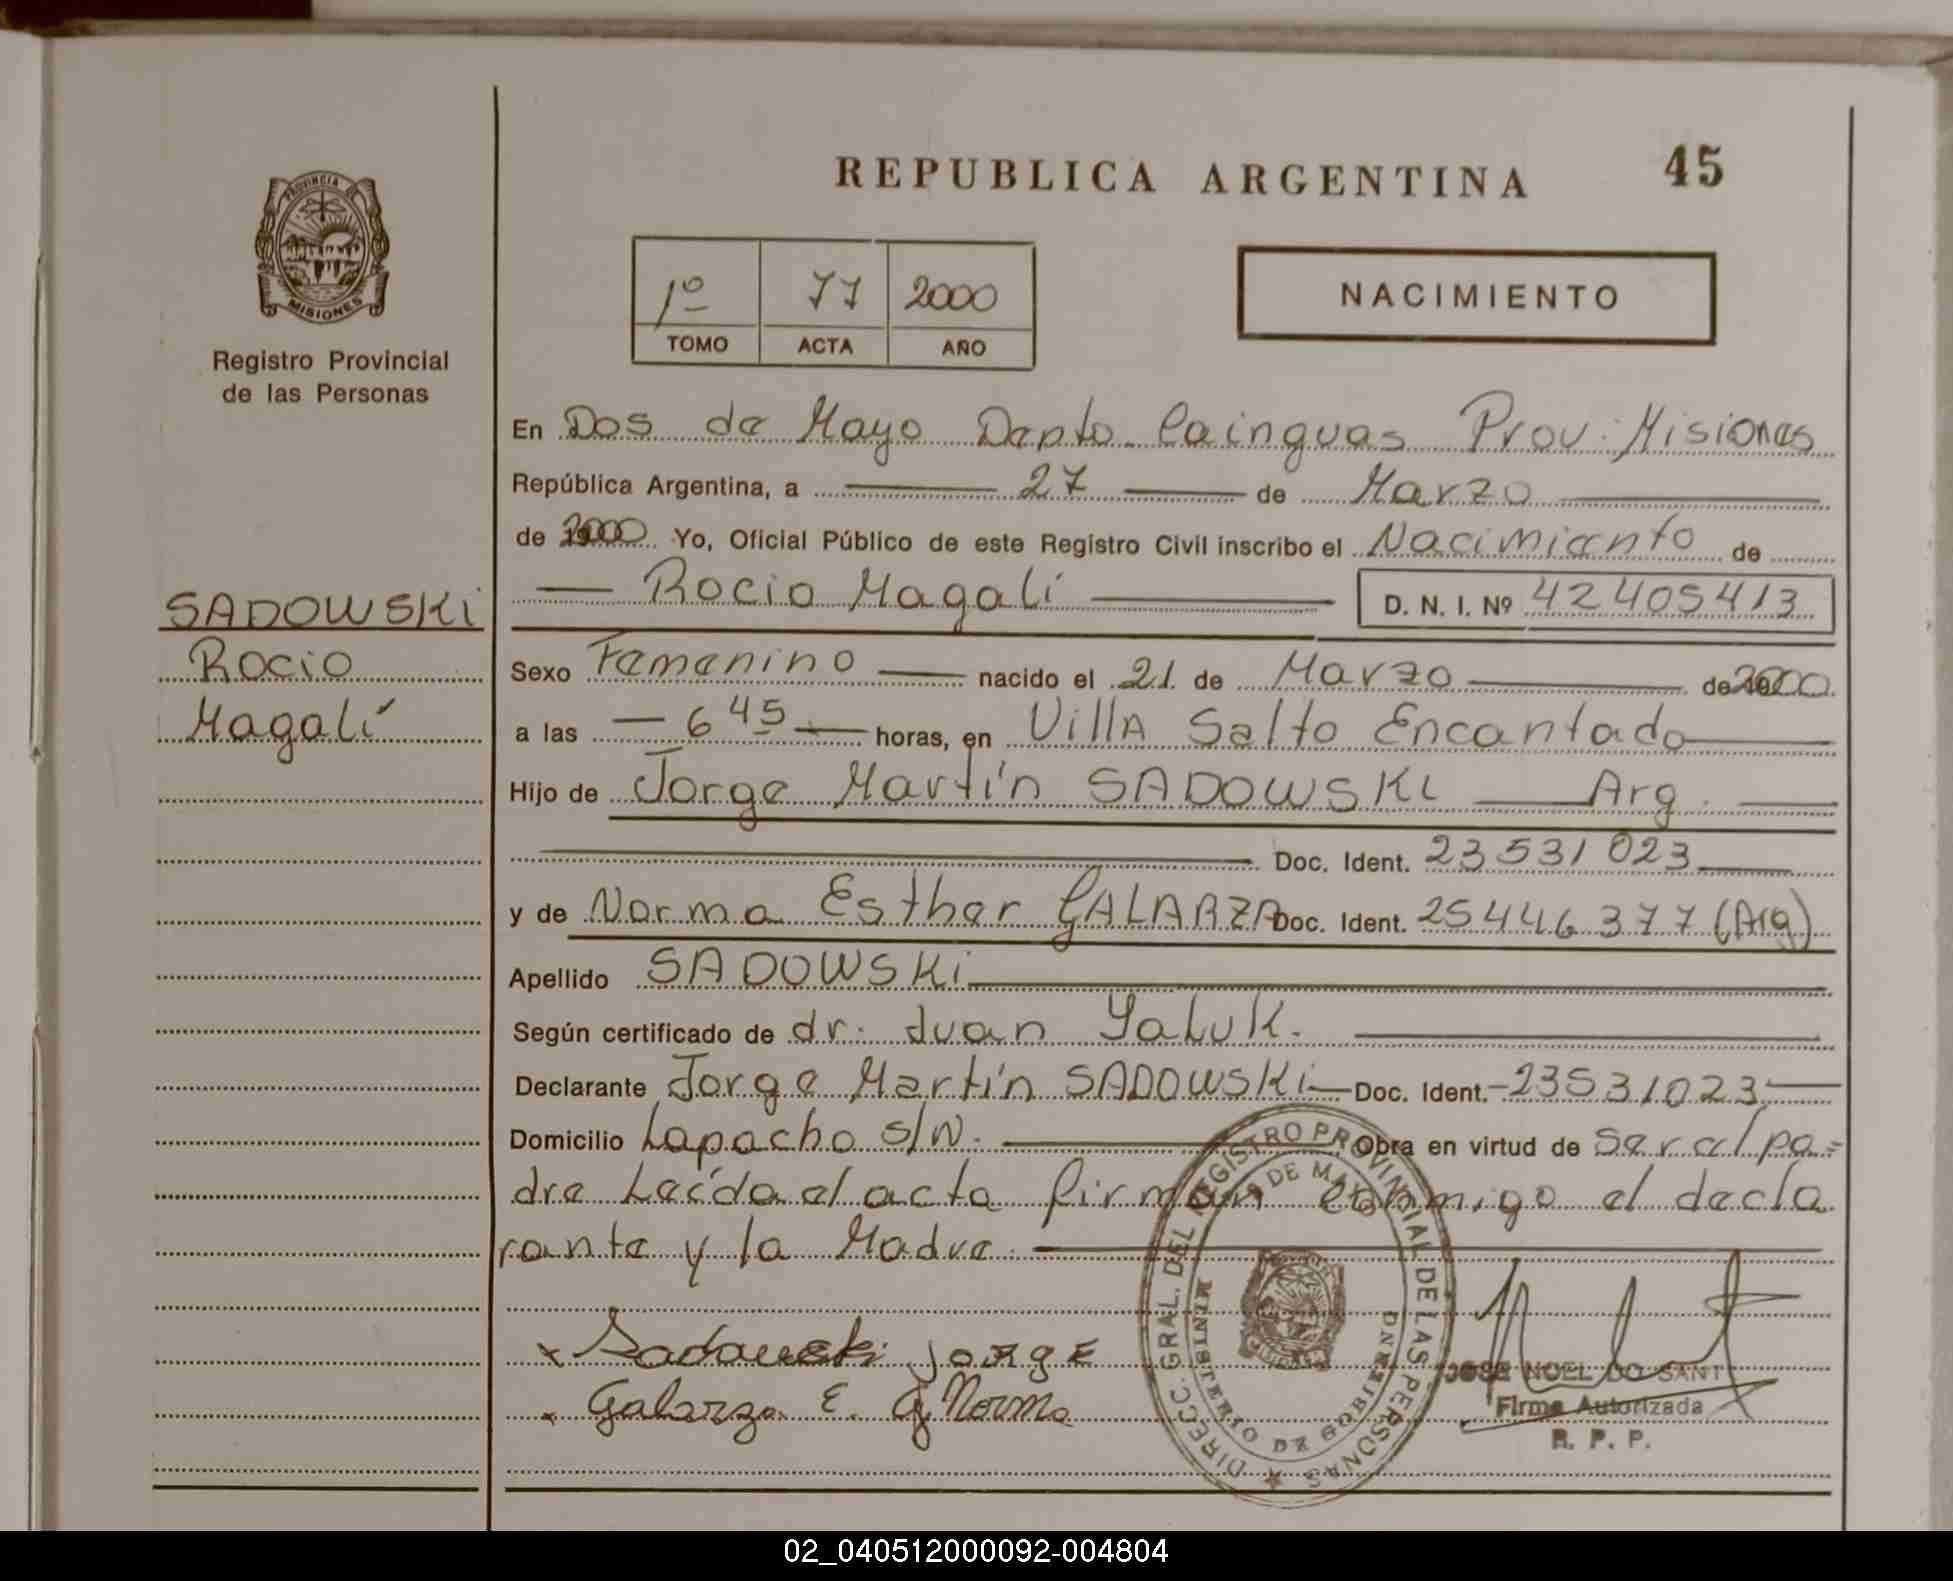 REPUBLICA ARGENTINA 45
PROVINCIA DE
MISIONES
Registro Provincial
de las Personas
1º 77 2000
TOMO ACTA AÑO
NACIMIENTO
En Dos de Mayo Depto Cainguas Prov. Misiones
República Argentina, a 27 de Marzo
de 2000 Yo, Oficial Público de este Registro Civil inscribo el Nacimiento de
Rocio Magalí D. N. I. Nº 42405413
SADOWSKi
Rocio
Magalí
Sexo Femenino nacido el 21 de Marzo de 2000
a las 6 45 horas, en Villa Salto Encantado
Hijo de Jorge Martín SADOWSKi Arg.
Doc. Ident. 23531023
y de Norma Esther GALARZA Doc. Ident. 25446377 (Arg)
Apellido SADOWSKi
Según certificado de dr. Juan Yaluk.
Declarante Jorge Martín SADOWSKi Doc. Ident. 23531023
Domicilio Lapacho S/N. Obra en virtud de ser el pa=
dre Leída el acta firman conmigo el decla
rante y la Madre
x Sadowski jorge
x Galarza E. G Norma
DIRECC. GRAL. DEL REGISTRO PROVINCIAL DE LAS PERSONAS
DE MAYO
MINISTERIO DE GOBIERNO
JOSE NOEL DO SANT
Firma Autorizada
R. P. P.
02_040512000092-004804